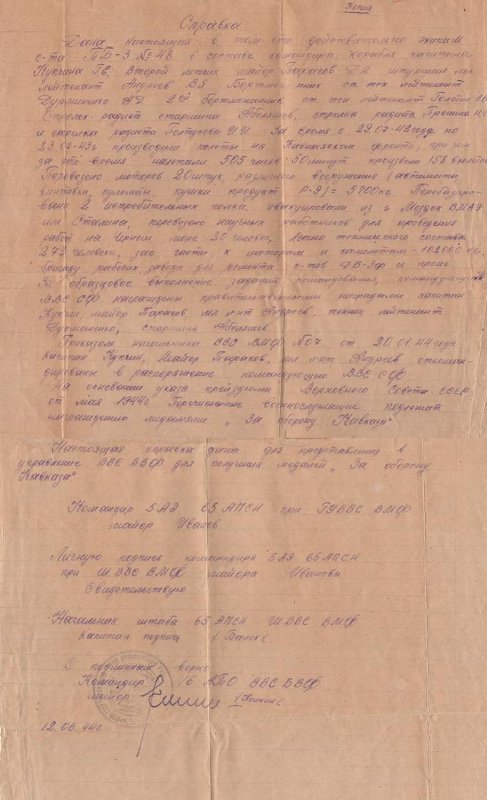 Копия
Справка
Дана настоящая в том что действительно экипаж
с-та ТБ-3 № 48 в составе командира корабля капитана
Купчина Г.С. Второй летчик майор Тарасов Д.И. штурман мл.
лейтенант Андреев В.Я. Борттехник ст. тех лейтенант
Дурманенко 2й бортмеханик от. тех лейтенант
Стрелок-радист старшина Аблямов, стрелка радиста Пронина
и стрелка радиста И.И. За время с 29.07.42 года по
23.07.43г производили полеты на Кавказском фронте, причем
за это время налетали 505 часов 50 минут произвели 158 вылетов
Перевезено моторов 20 штук разного вооружения (автоматы
винтовки, пулеметы, пушки продукт Р-9) = 5700 кг.
2 истребительных полка, эвакуировали из г. Моздок ВМАУ
им Сталина, перевезено научных работников для проведения
работ на Черном море 20 человек, Летно технического состава
272 человека, зап части к моторам и самолетам - 102000 кг,
бригаду рабочих завода для ремонта с-тов ДБ-3ф и проче
За образцовое выполнение заданий командования, командующего
ВВС СФ награждены правительственными наградами капитан
майор Тарасов мл. л-нт Андреев, техник лейтенант
старшина Аблямов
Приказом начальника ВВС ВМФ № 07 от 20.01.44 года
капитан майор Тарасов, мл. л-нт Андреев откоман-
дированы в распоряжение командующего ВВС СФ
На основании указа президиума Верховного Совета СССР
от мая 1944г. военнослужащие подлежат
награждению медалями „За оборону Кавказа"
Настоящая справка дана для представления в
управление ВВС БВФ для получения медалей „За оборону
Кавказа"
Командир 5 АЭ 65 АПСН при ГУВВС ВМФ
майор Иванов
Личную подпись командира 5 АЭ 65 АПСН
при Ш ВВС ВМФ майора Иванова
Свидетельствую
Начальник штаба 65 АПСН Ш ВВС ВМФ
капитан подпись
С подлинным верно
Командир 16 АТО ВВС БВФ
майор
12.06.44г.